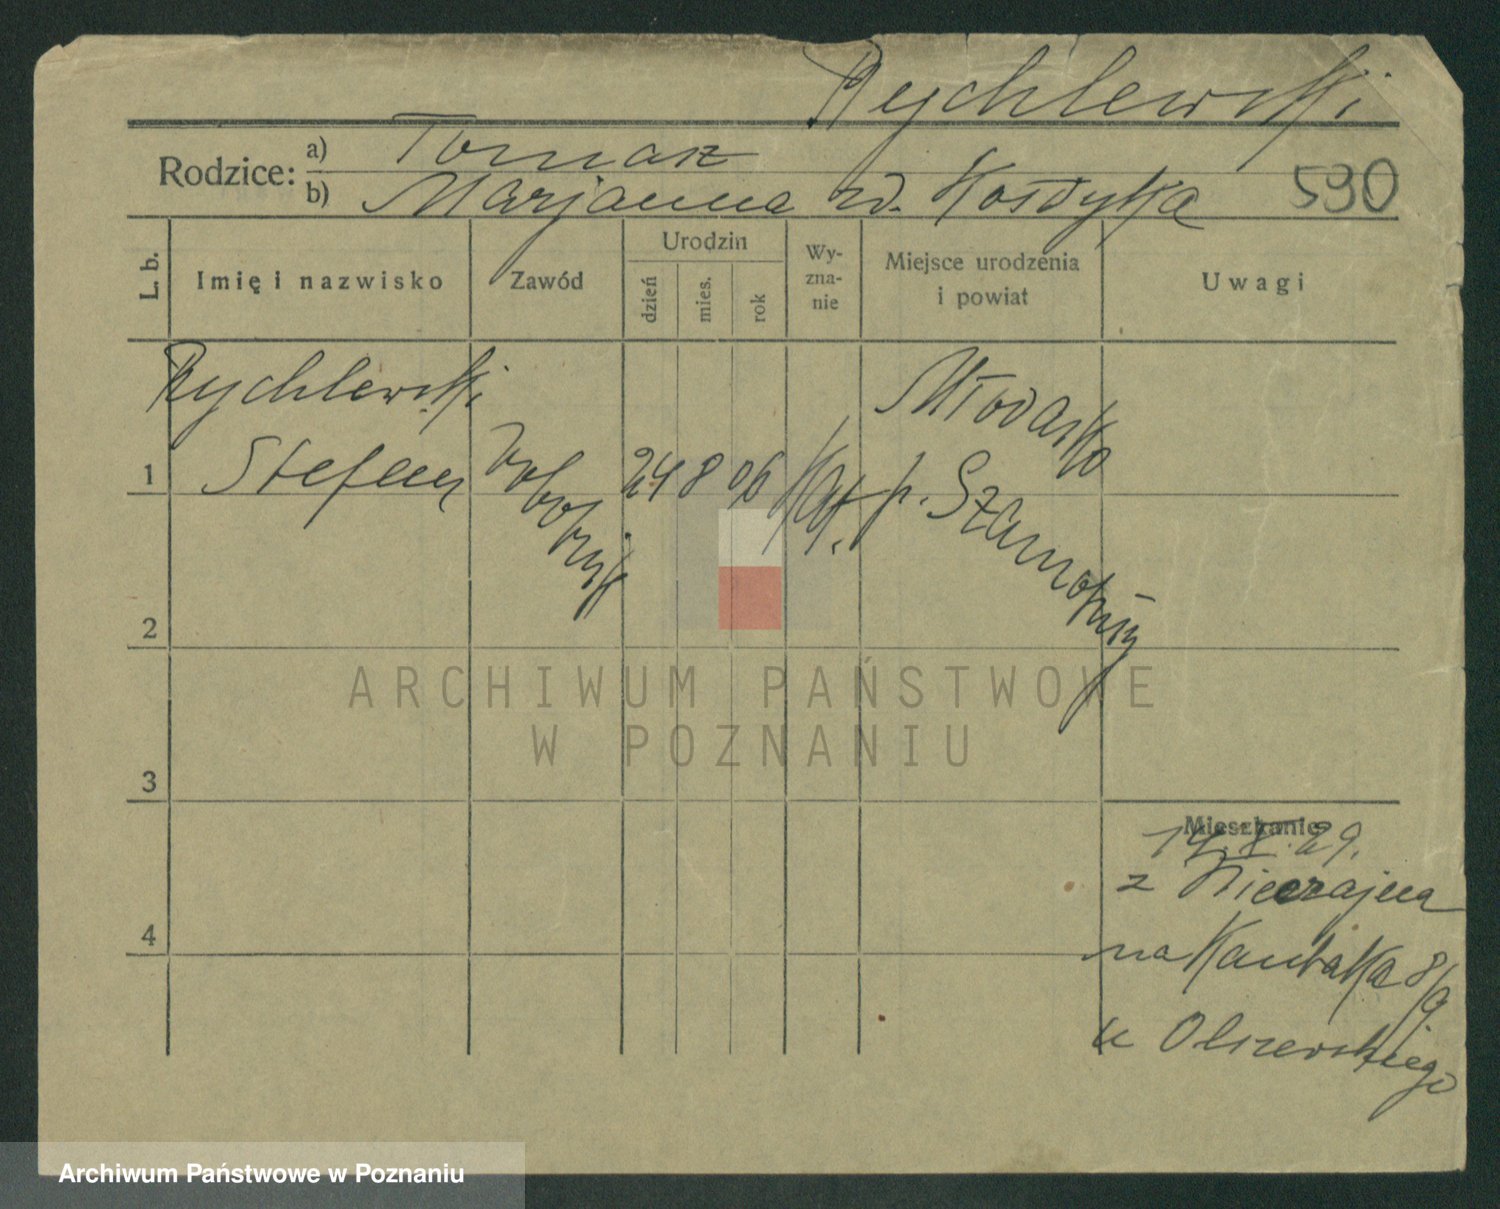 Rychlewski
Rodzice: a) Tomasz
b) Marjanna zd. Kołdyka
590
L. b.
Imię i nazwisko
Zawód
Urodzin
dzień
mies.
rok
Wy-
zna-
nie
Miejsce urodzenia
i powiat
Uwagi
Rychlewski
1 Stefan
robotnik
24 8 06
kat.
Młodasko
p. Szamotuły
2
3
4
Mieszkanie
14.X.29.
z
na Kantaka 8/9
u Olszewskiego
ARCHIWUM PAŃSTWOWE
W POZNANIU
Archiwum Państwowe w Poznaniu